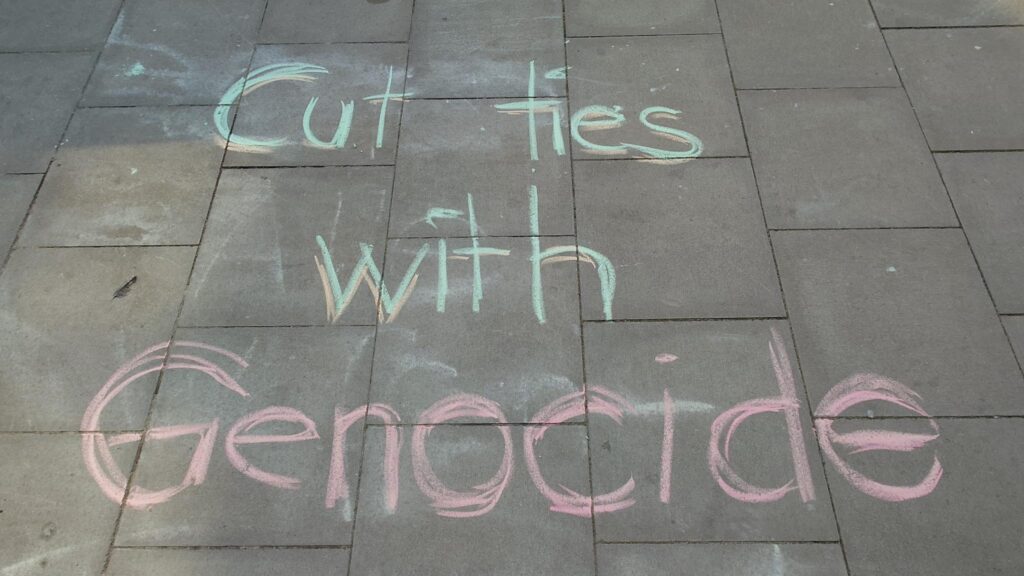 Cut ties
with
Genocide